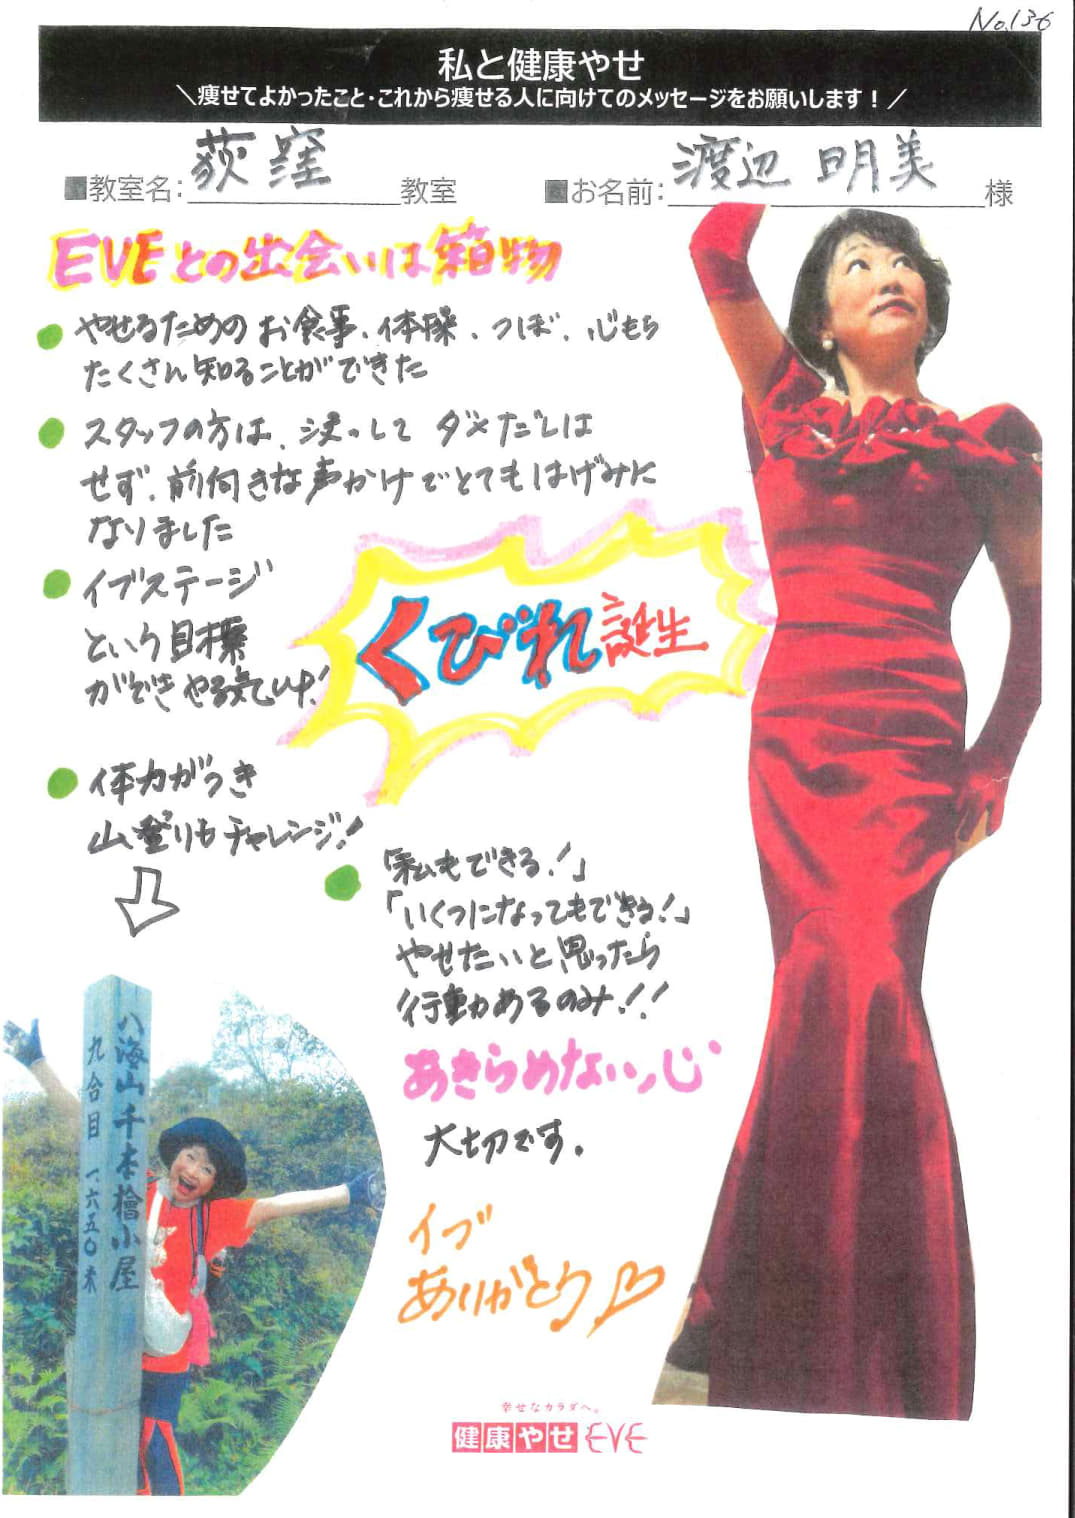 No.136
私と健康やせ
＼痩せてよかったこと・これから痩せる人に向けてのメッセージをお願いします！／
■教室名：荻窪教室
■お名前：渡辺 明美様
EVEとの出会いは宝物
やせるためのお食事、体操、つぼ、心もち
たくさん知ることができた
スタッフの方は、決ってダメだしは
せず、前向きな声かけでとてもはげみに
なりました
イブステージ
という目標
ができやる気UP!
くびれ誕生
体力がつき
山登りもチャレンジ!
「私もできる!」
「いくつになってもできる!」
やせたいと思ったら
行動あるのみ!!
あきらめない心
大切です。
イブ
ありがとう♡
八海山千本檜小屋
九合目 一、六五〇米
幸せなカラダへ。
健康やせ EVE